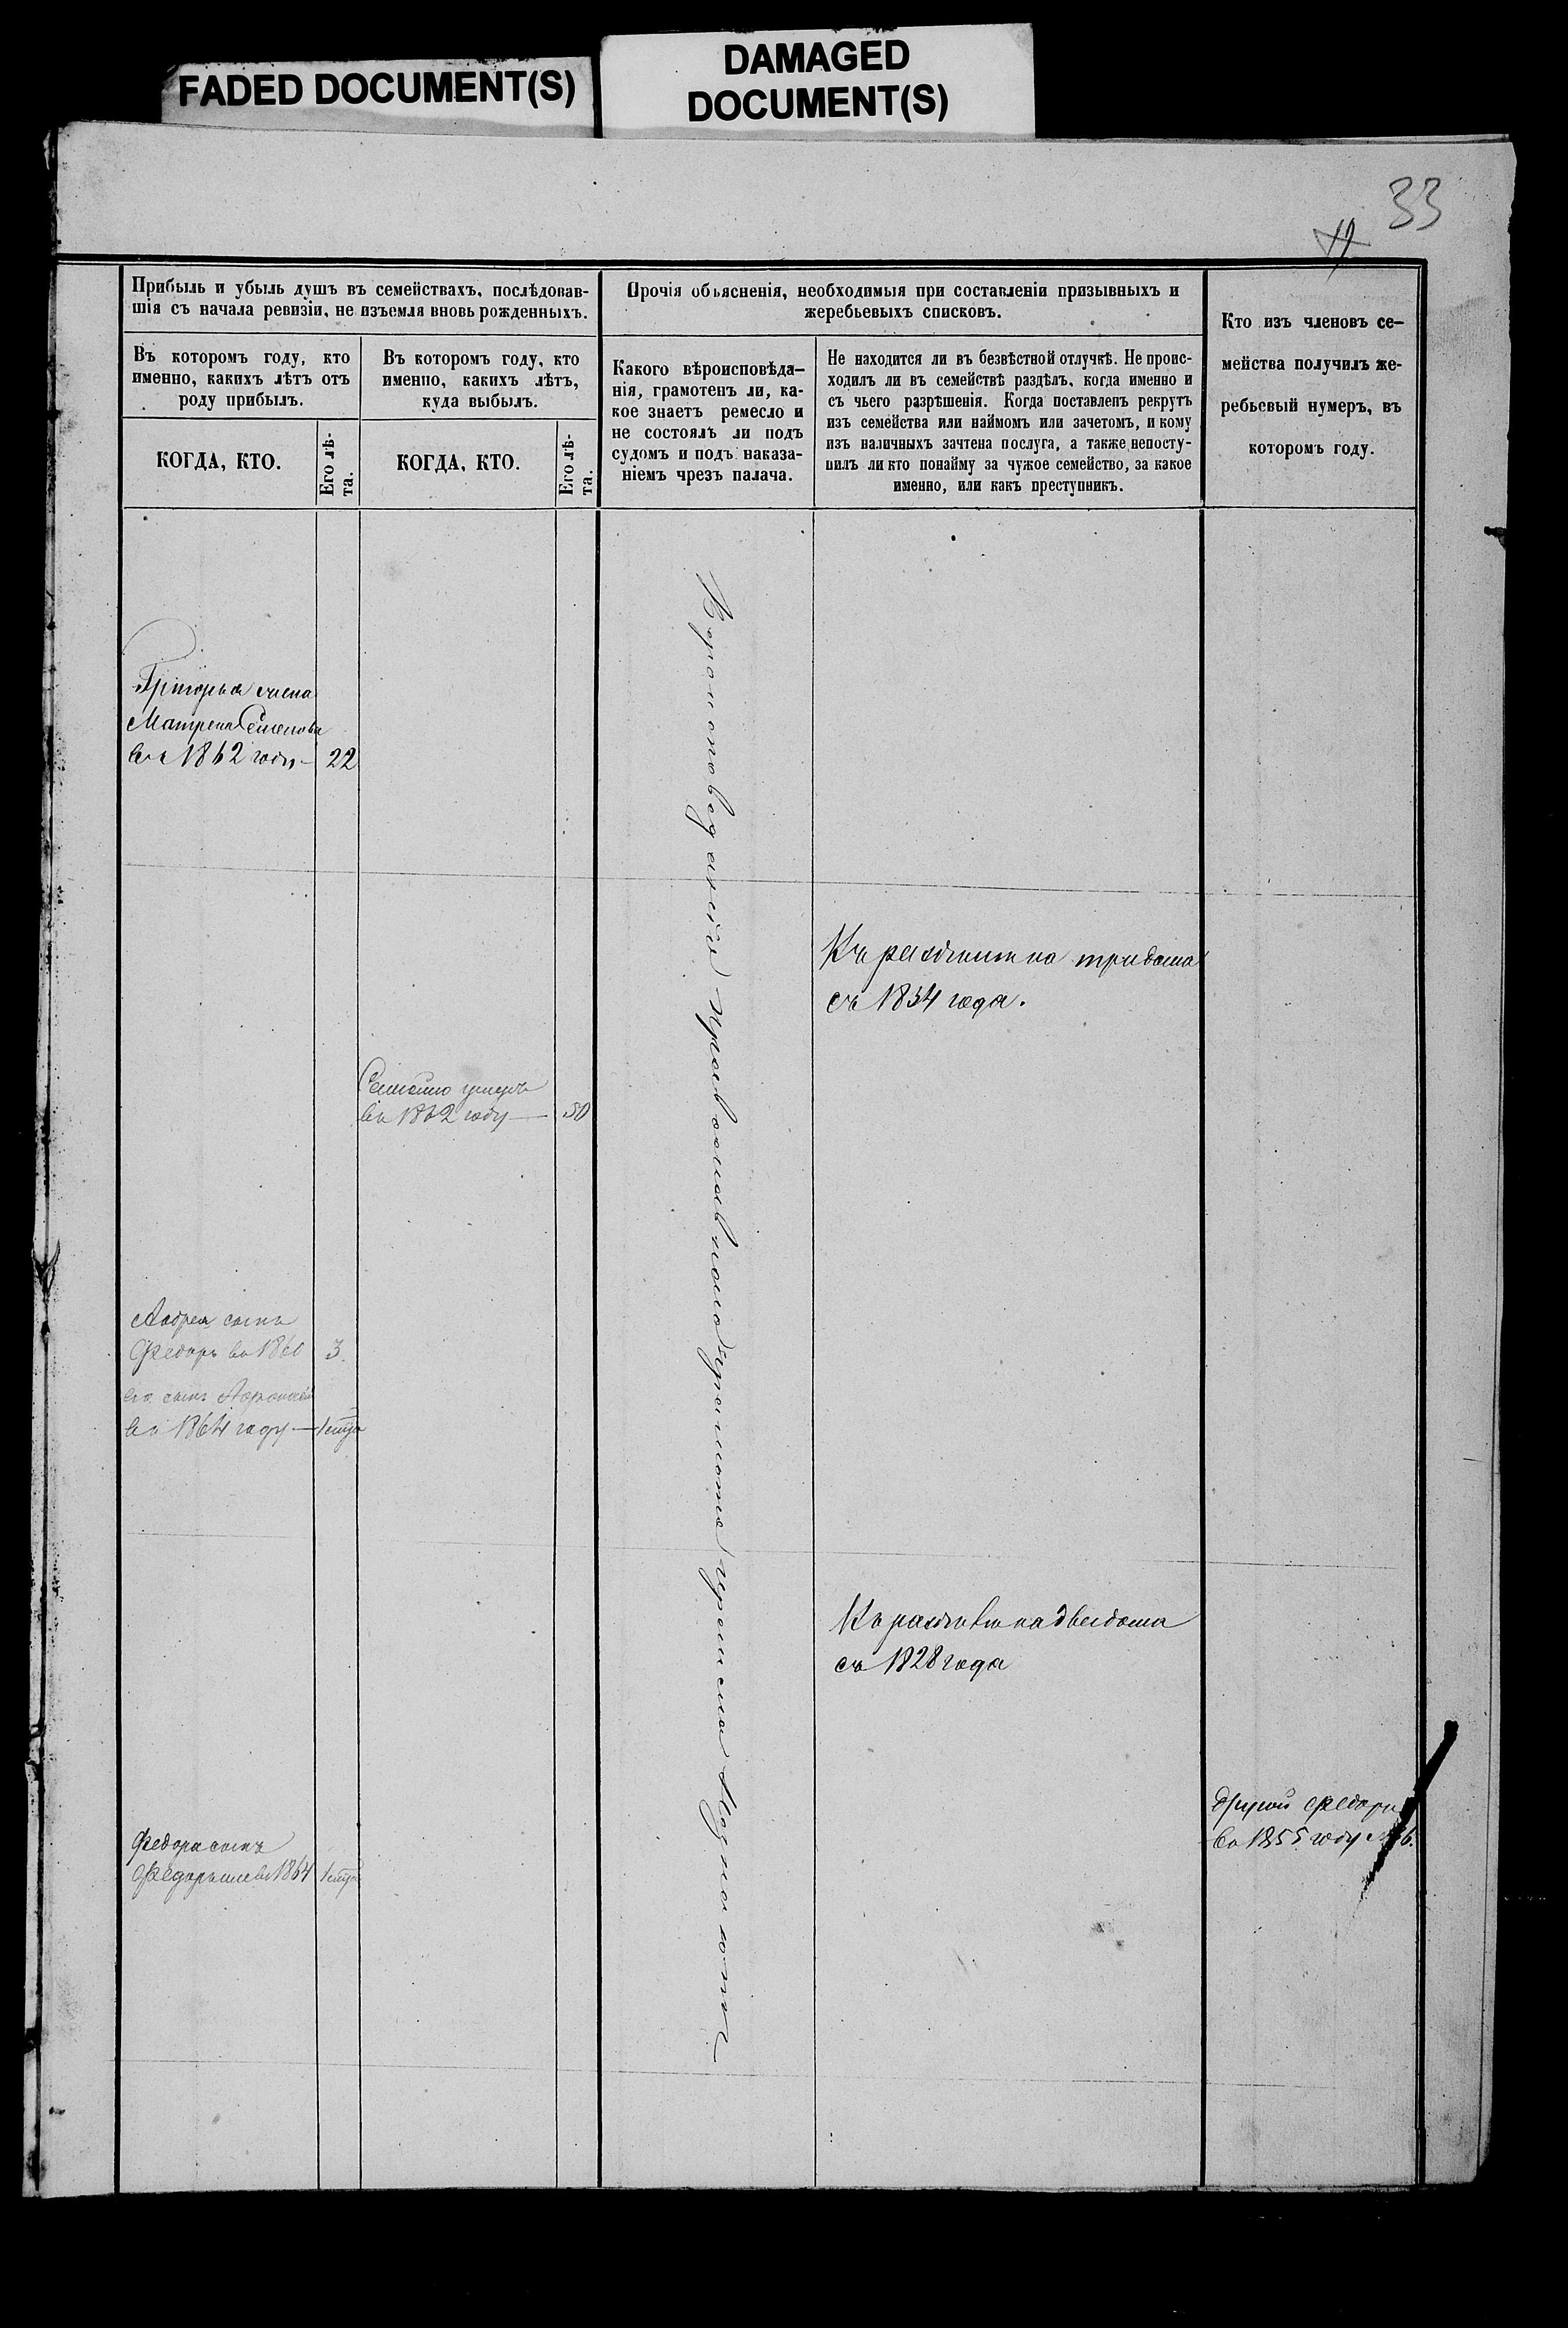 FADED DOCUMENT(S)
DAMAGED
DOCUMENT(S)
33
Прибыль и убыль душъ въ семействахъ, послѣдовав-
шія съ начала ревизіи, не изъемля вновь рожденныхъ.
Въ которомъ году, кто
именно, какихъ лѣтъ отъ
роду прибылъ.
КОГДА, КТО.
Его лѣ-
та.
Въ которомъ году, кто
именно, какихъ лѣтъ,
куда выбылъ.
КОГДА, КТО.
Его лѣ-
та.
Прочія объясненія, необходимыя при составленіи призывныхъ и
жеребьевыхъ списковъ.
Какого вѣроисповѣда-
нія, грамотенъ ли, ка-
кое знаетъ ремесло и
не состоялъ ли подъ
судомъ и подъ наказа-
ніемъ чрезъ палача.
Не находится ли въ безвѣстной отлучкѣ. Не проис-
ходилъ ли въ семействѣ раздѣлъ, когда именно и
съ чьего разрѣшенія. Когда поставленъ рекрутъ
изъ семейства или наймомъ или зачетомъ, и кому
изъ наличныхъ зачтена послуга, а также непосту-
пилъ ли кто понайму за чужое семейство, за какое
именно, или какъ преступникъ.
Кто изъ членовъ се-
мейства получилъ же-
ребьевый нумеръ, въ
которомъ году.
Григорья жена
Матрена Семенова
въ 1862 году — 22
Въ на три дома
съ 1854 года.
умеръ
въ 1862 году — 50
Андрея сынъ
Федоръ въ 1860 3.
его сынъ
въ 1864 году —
Вѣроисповеданія православнаго грамоте ремесла
Въ на две дома
съ 1828 года
другой Федоръ
въ 1855 году № 6.
Федора сынъ
1864